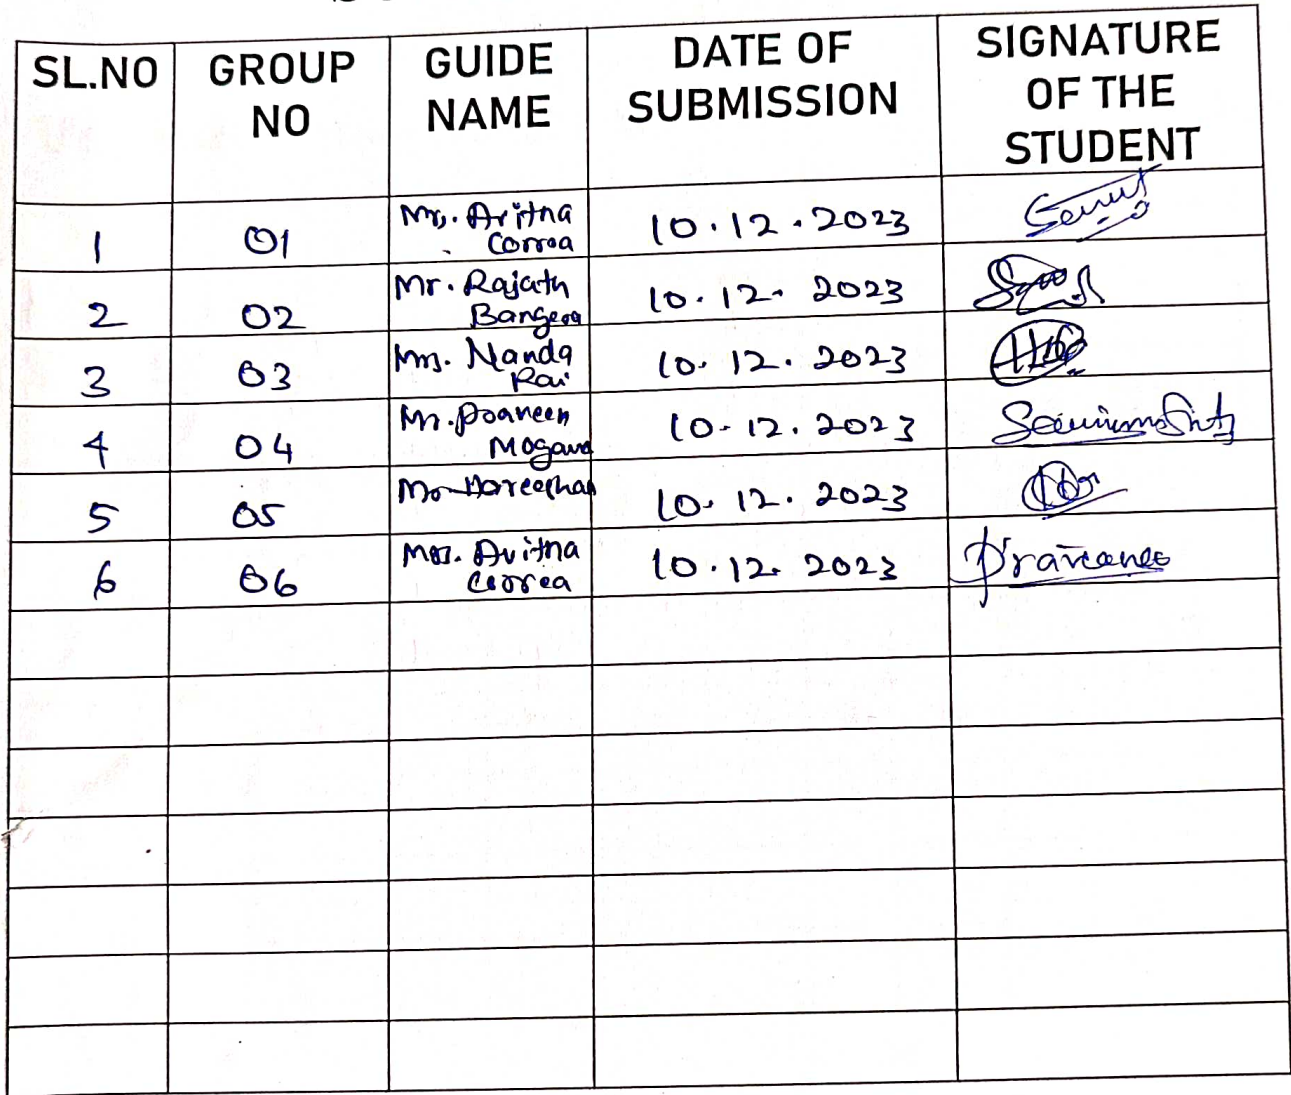 SL.NO GROUP NO GUIDE NAME DATE OF SUBMISSION SIGNATURE OF THE STUDENT
1 01 Mrs. Avitna Correa 10.12.2023
2 02 Mr. Rajath Bangera 10.12.2023
3 03 Mrs. Nanda Rai 10.12.2023
4 04 Mr. Praveen 10.12.2023
5 05 10.12.2023
6 06 Mrs. Avitna Correa 10.12.2023